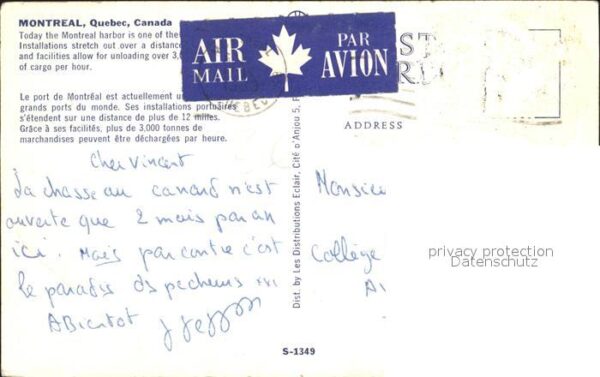 MONTREAL, Quebec, Canada
Today the Montreal harbor is one of the
Installations stretch out over a distance
and facilities allow for unloading over 3,0
of cargo per hour.
Le port de Montréal est actuellement u
grands ports du monde. Ses installations portuaires
s'étendent sur une distance de plus de 12 milles.
Grâce à ses facilités, plus de 3,000 tonnes de
marchandises peuvent être déchargées par heure.
AIR MAIL
PAR AVION
ST
RD
ADDRESS
Cher Vincent
La chasse au canard n'est
ouverte que 2 mois par an
ici. Mais par contre c'est
le paradis ds pecheurs
A Bientot
Dist. by Les Distributions Eclair, Cité d'Anjou 5, P
Monsieu
Collège
A
privacy protection
Datenschutz
S-1349